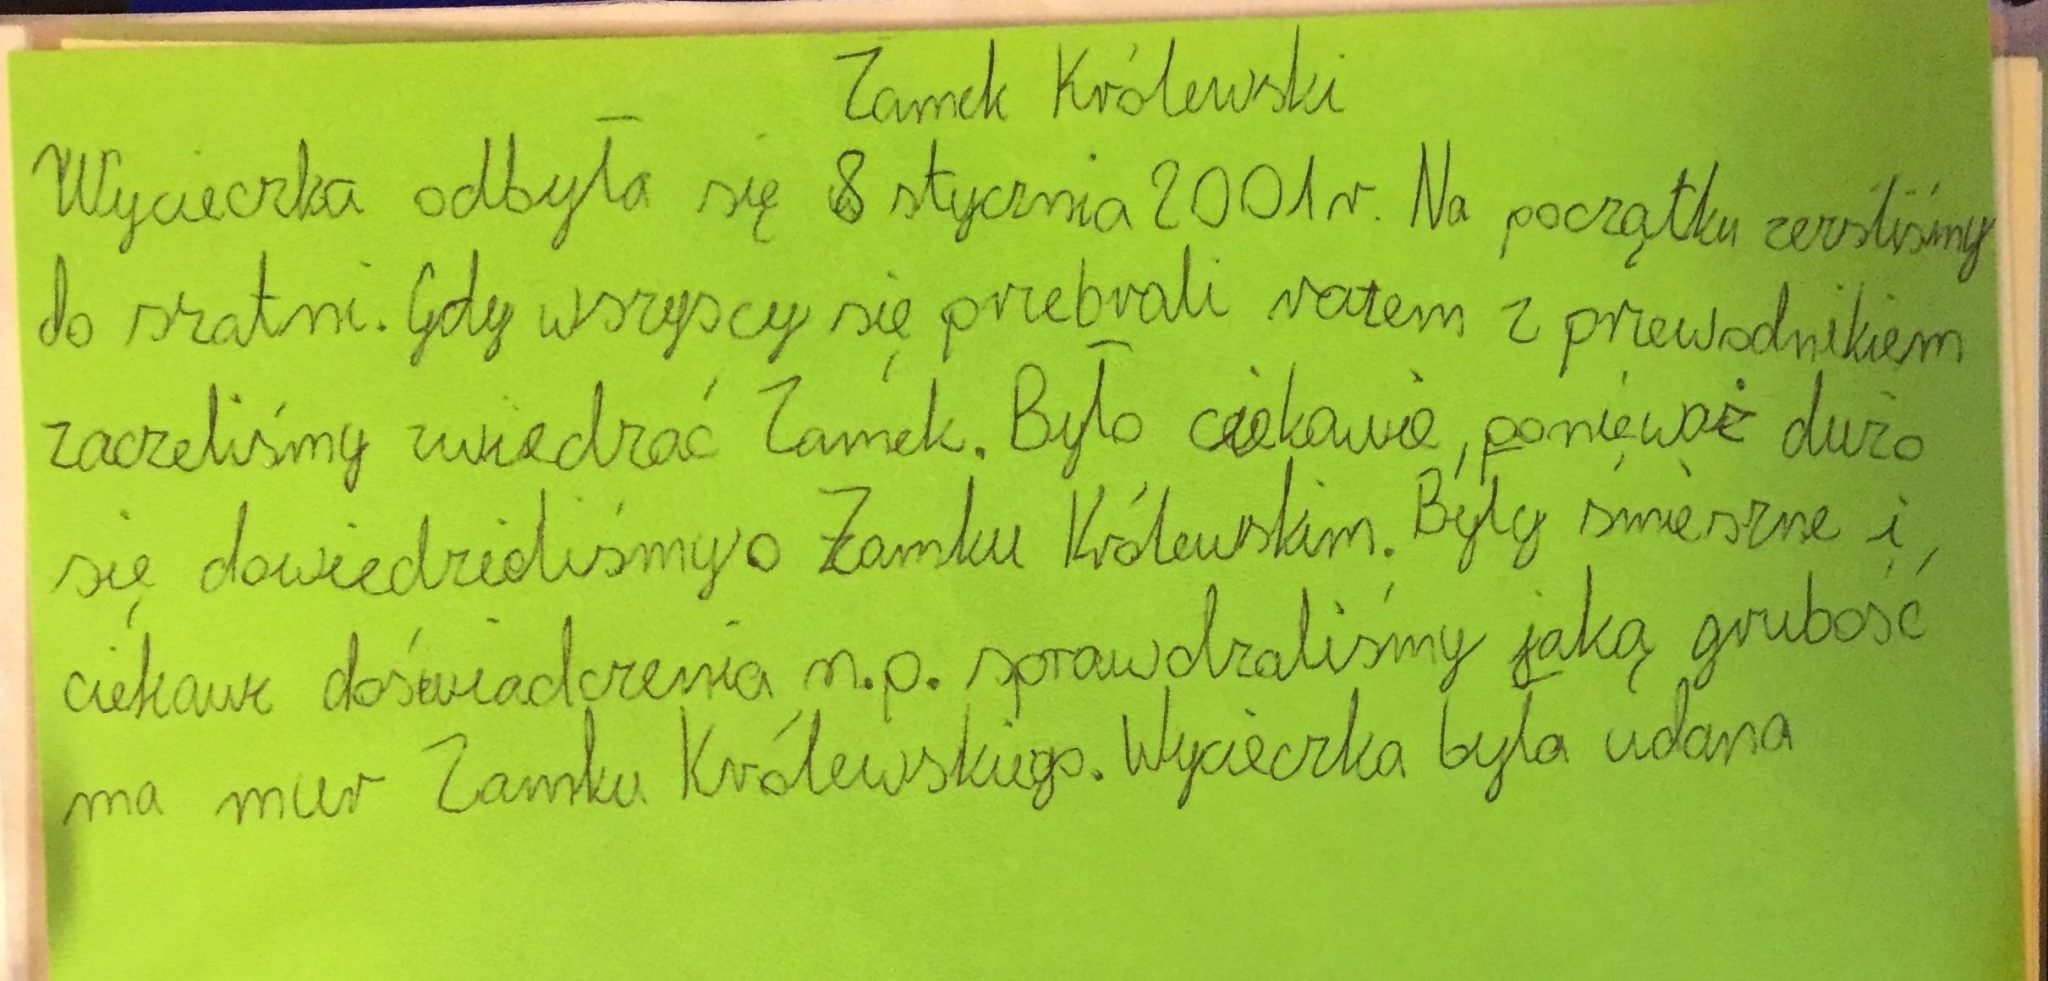 Zamek Królewski
Wycieczka odbyła się 8 stycznia 2001r. Na początku zerśliśmy
do szatni. Gdy wszyscy się przebrali razem z przewodnikiem
zaczeliśmy zwiedzać Zamek. Było ciekawie, ponieważ dużo
się dowiedzieliśmy o Zamku Królewskim. Były śmieszne i
ciekawe doświadczenia n.p. sprawdzaliśmy jaką grubość
ma mur Zamku Królewskiego. Wycieczka była udana